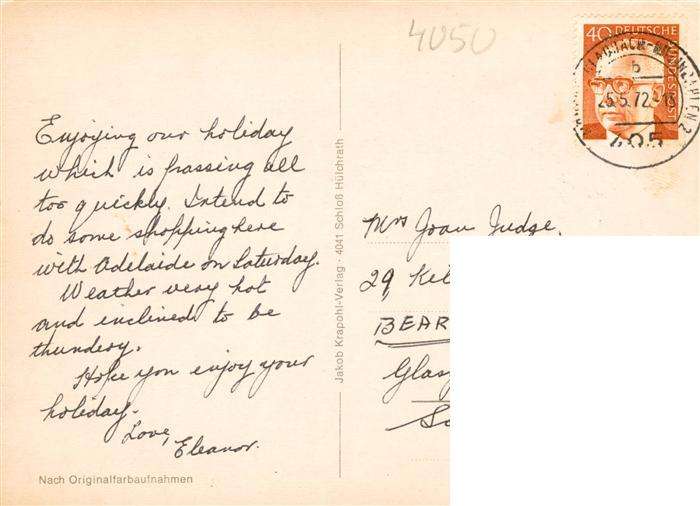 4050
40 DEUTSCHE BUNDESPOST
25.5.72.-18
b
405
Enjoying our holiday
which is passing all
too quickly. Intend to
do some shopping here
with Adelaide on Saturday.
Weather very hot
and inclined to be
thundery.
Hope you enjoy your
holiday.
Love,
Eleanor.
Nach Originalfarbaufnahmen
Jakob Krapohl-Verlag · 4041 Schloß Hülchrath
Mrs Joan Judge,
29, Kil
BEAR
Glas
Sc